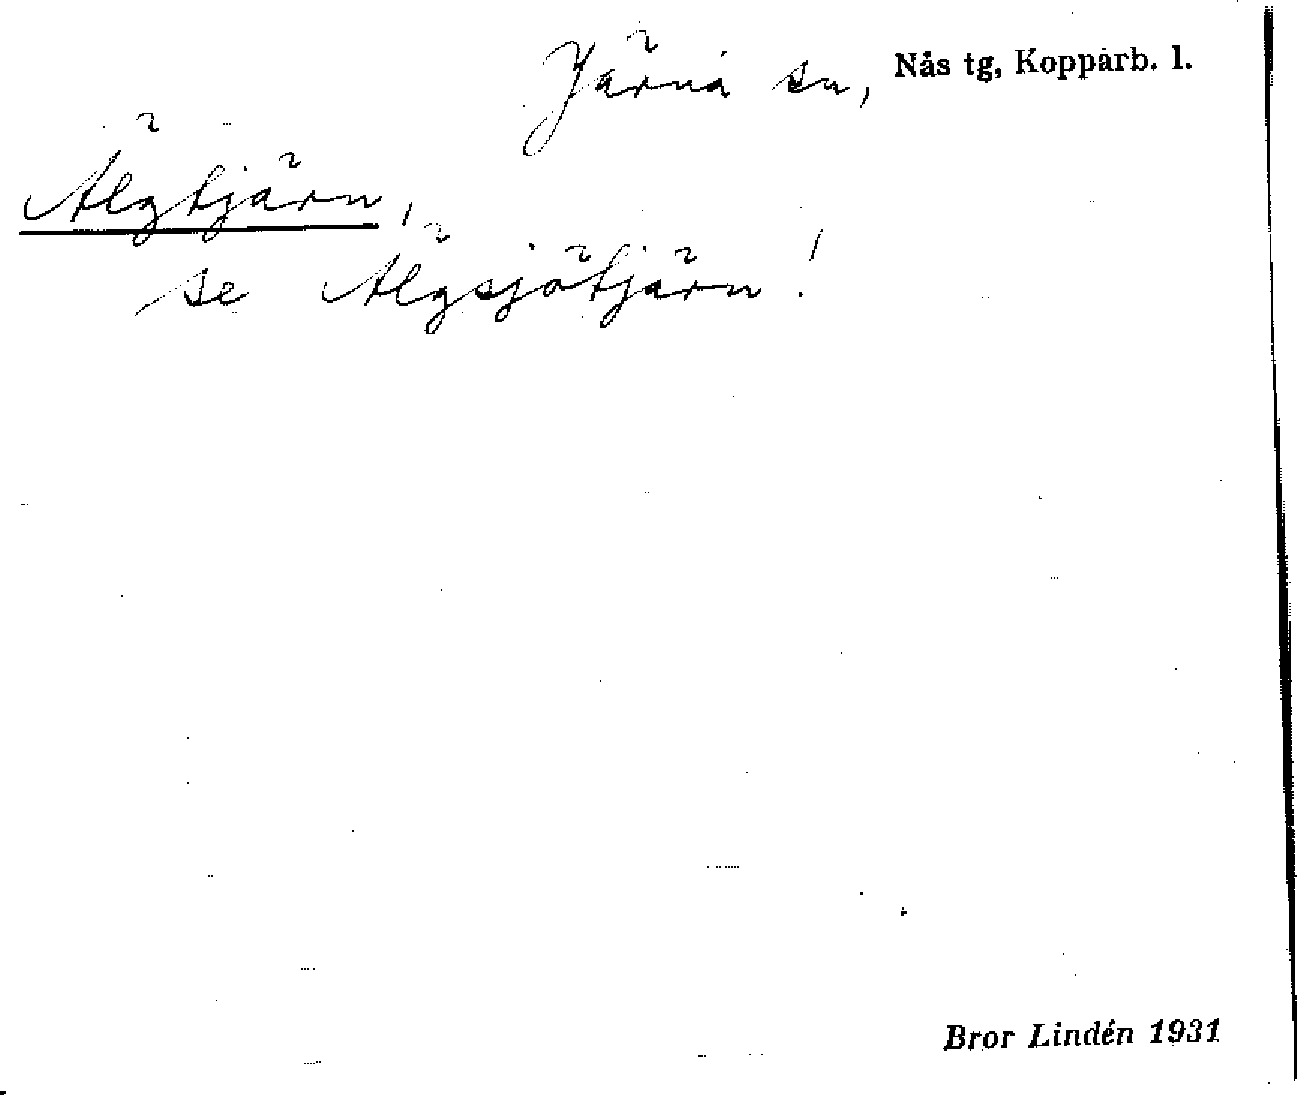 Järna sn, Nås tg, Kopparb. l.
Älgtjärn,
se Älgsjötjärn!
Bror Lindén 1931